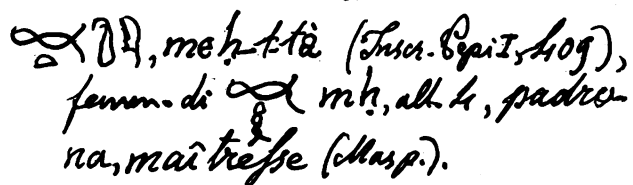 , meḥ-t-tà (Inscr. Pepi I, 409),
femm. di mḥ, alt. 4, padro-
na, maîtresse (Masp.).